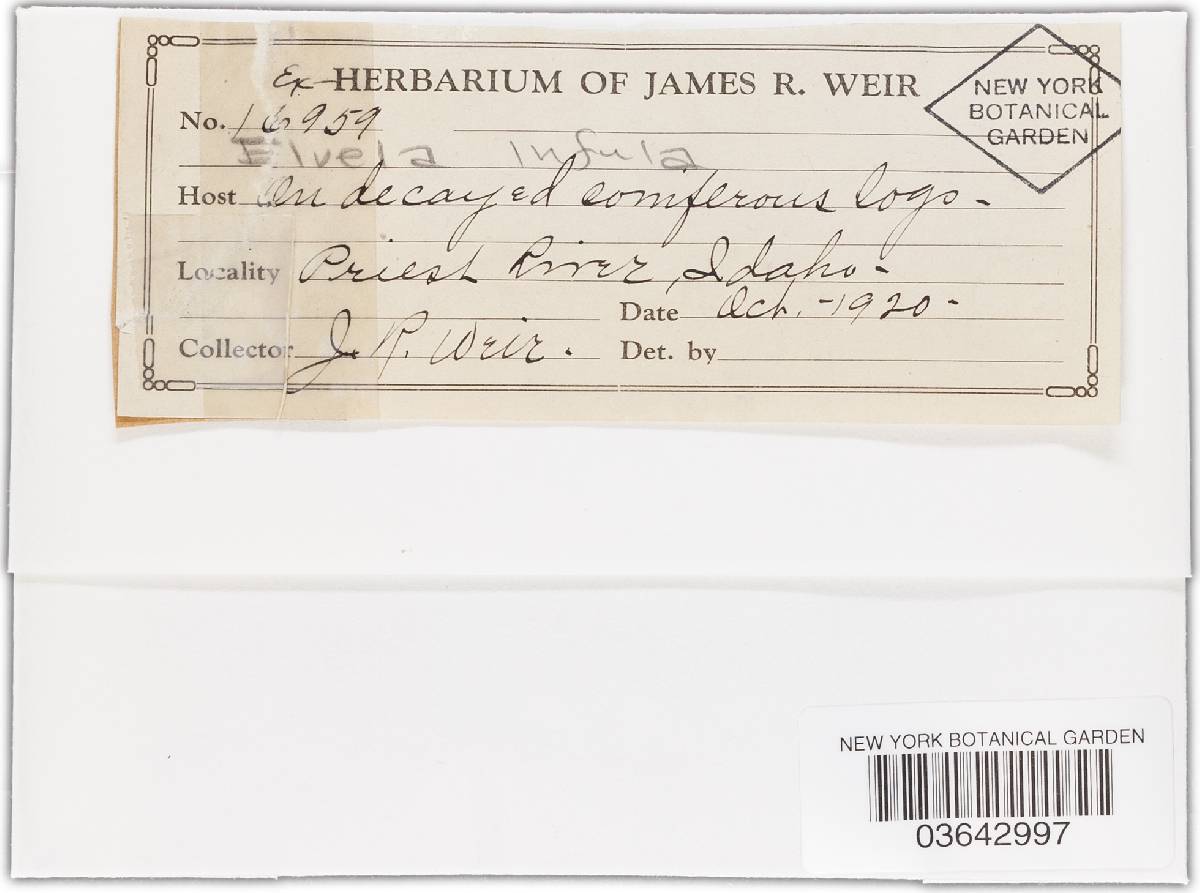 Ex HERBARIUM OF JAMES R. WEIR
NEW YORK
BOTANICAL
GARDEN
No. 16959
Elvela Infula
Host On decayed coniferous logs -
Locality Priest River, Idaho -
Date Oct. - 1920 -
Collector J. R. Weir.
Det. by
NEW YORK BOTANICAL GARDEN
03642997